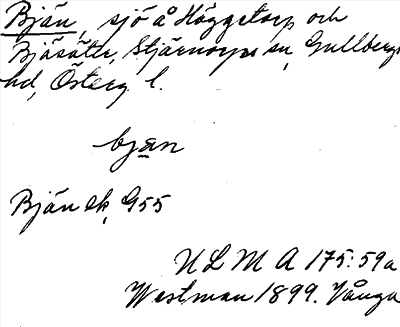 Bjän, sjö å Höggetorp och
Bjäsäter, Stjärnorps sn, Gullbergs
hd, Österg l.
bjan
Bjän ek, G55
ULMA 175:59a
Westman 1899. Vånga